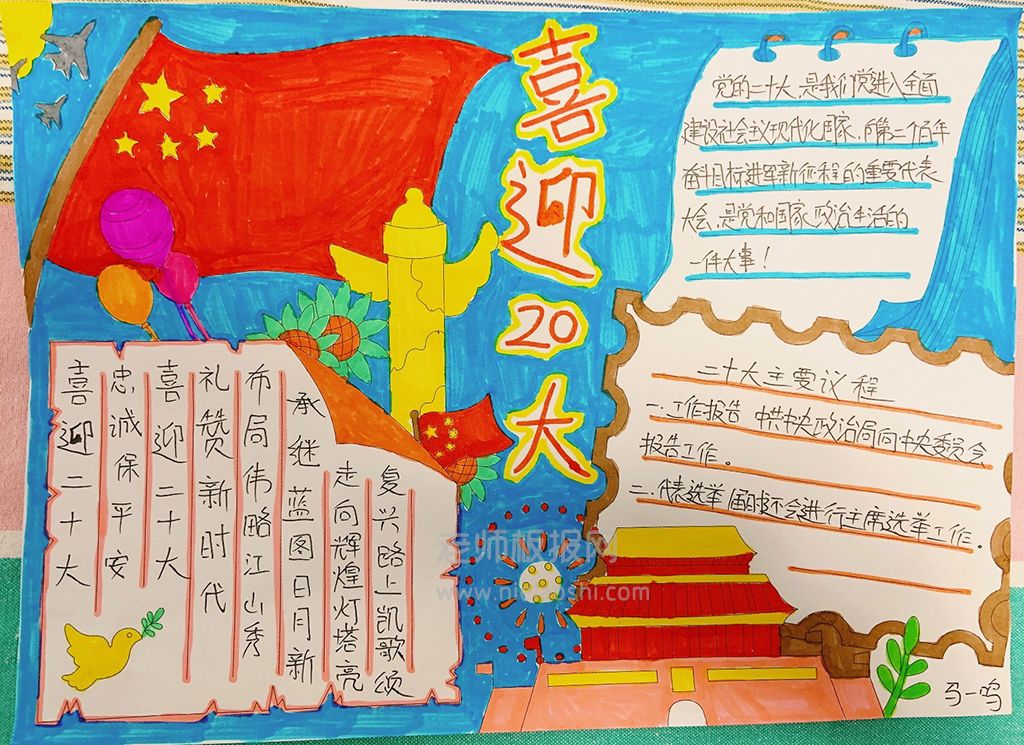 喜迎20大
党的二十大,是我们党进入全面
建设社会主义现代化国家、向第二个百年
奋斗目标进军新征程的重要代表
大会,是党和国家政治生活的
一件大事!
二十大主要议程
一.工作报告 中共中央政治局向中央委员会
报告工作。
二.代表选举 届时会进行主席选举工作。
喜迎二十大
忠诚保平安
喜迎二十大
礼赞新时代
布局伟略江山秀
承继蓝图日月新
走向辉煌灯塔亮
复兴路上凯歌颂
马一鸣
老师板报网